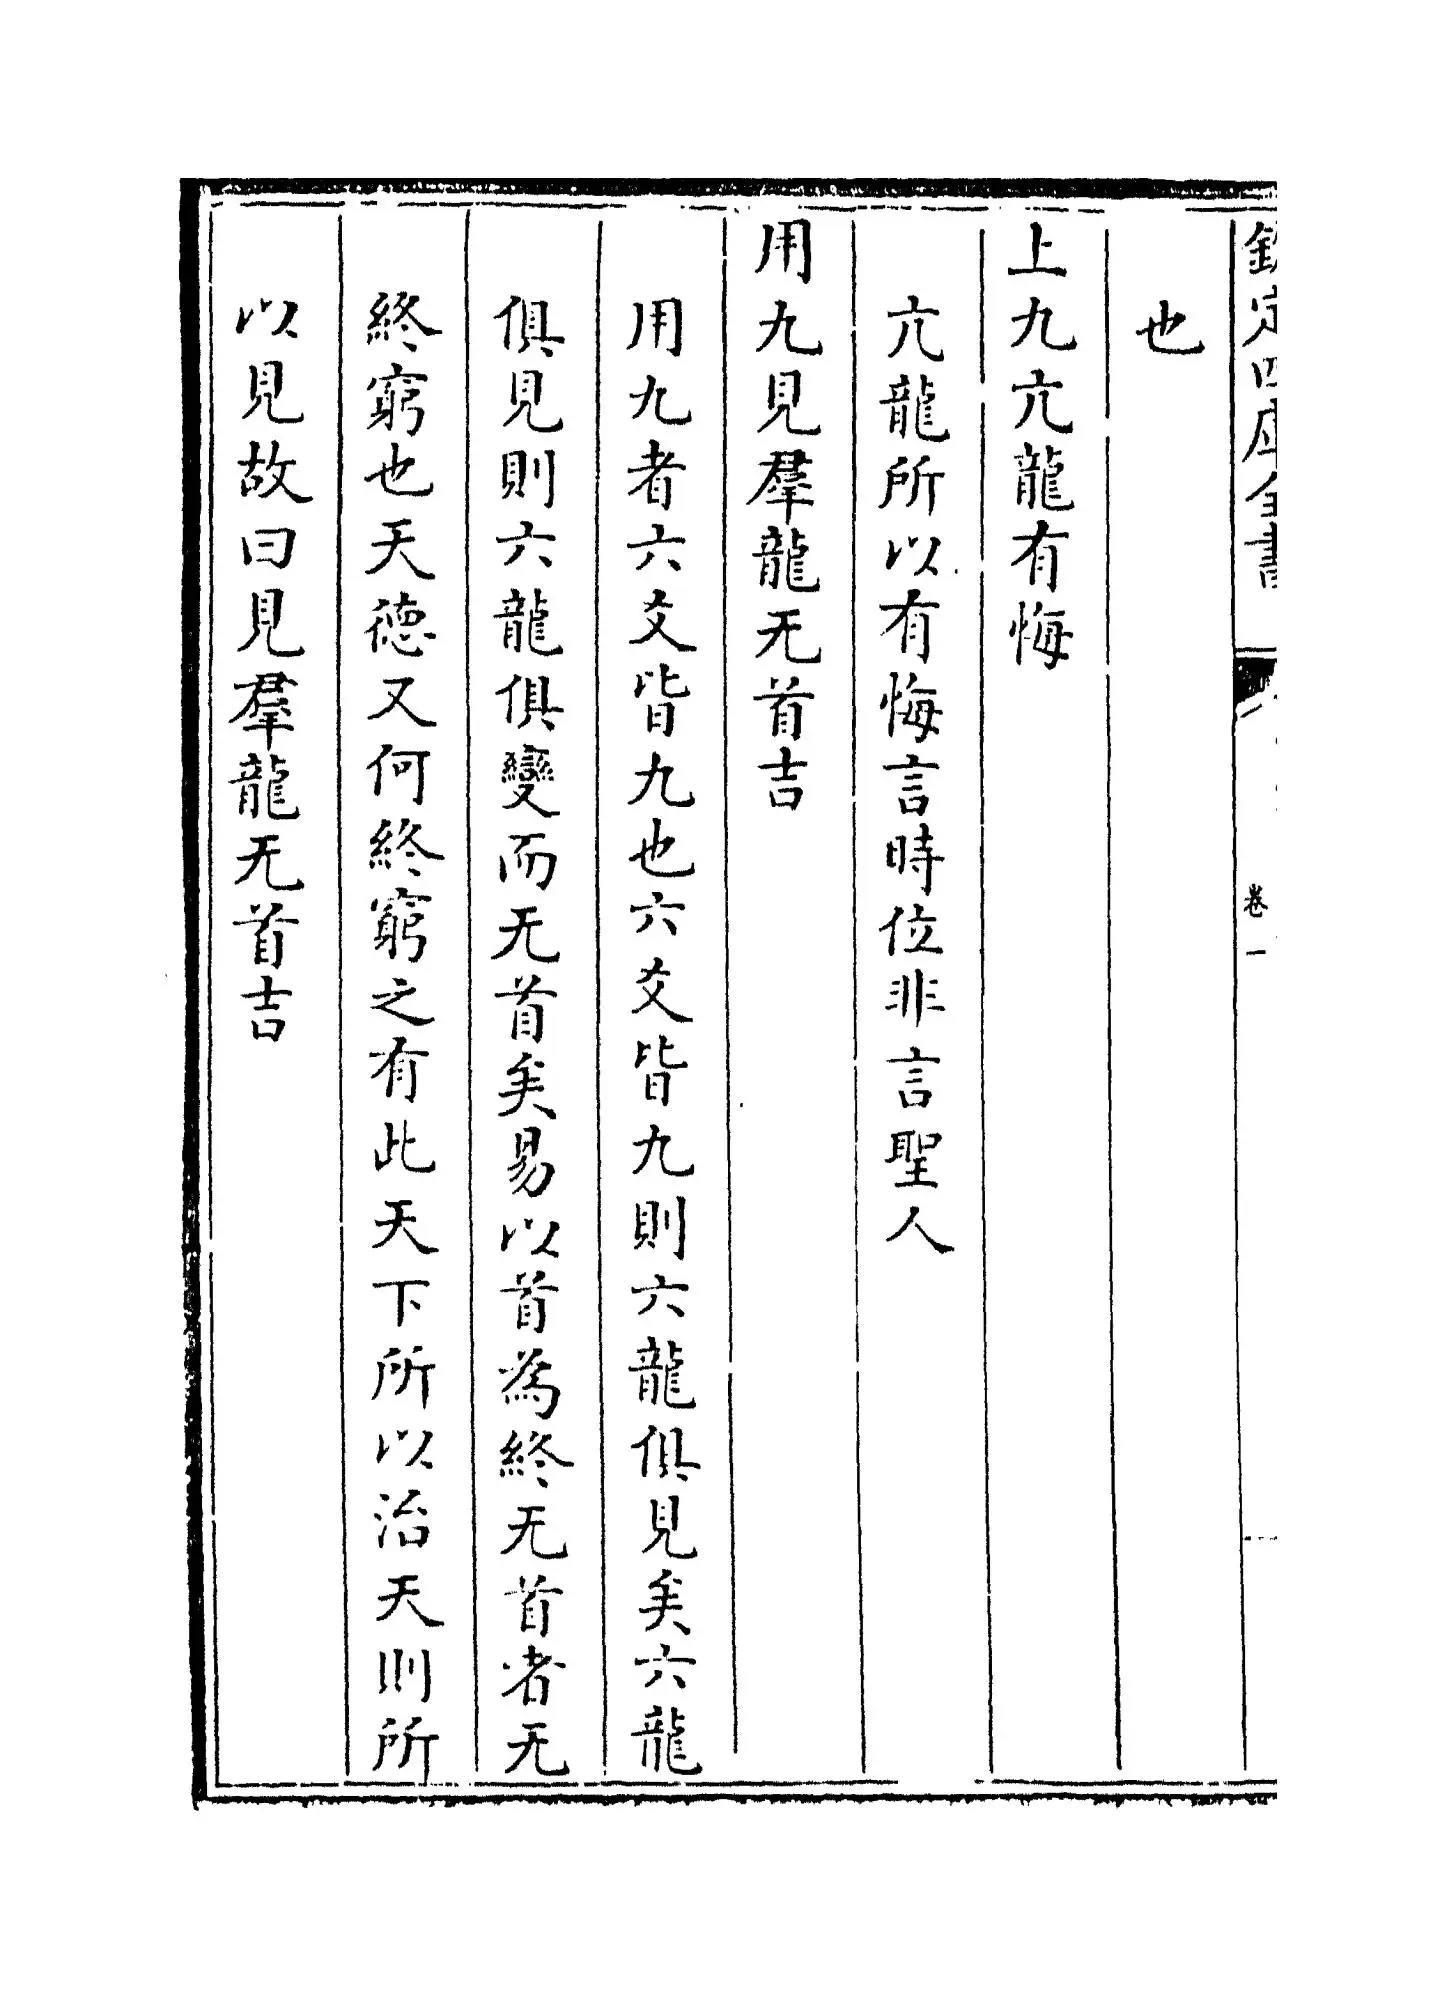 欽定四庫全書
卷一
也
上九亢龍有悔
亢龍所以有悔言時位非言聖人
用九見羣龍无首吉
用九者六爻皆九也六爻皆九則六龍俱見矣六龍
俱見則六龍俱變而无首矣易以首為終无首者无
終窮也天德又何終窮之有此天下所以治天則所
以見故曰見羣龍无首吉